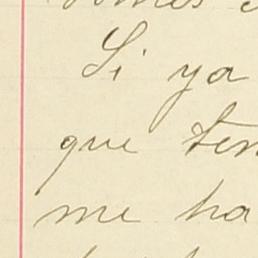 Si ya
que ten
me ha